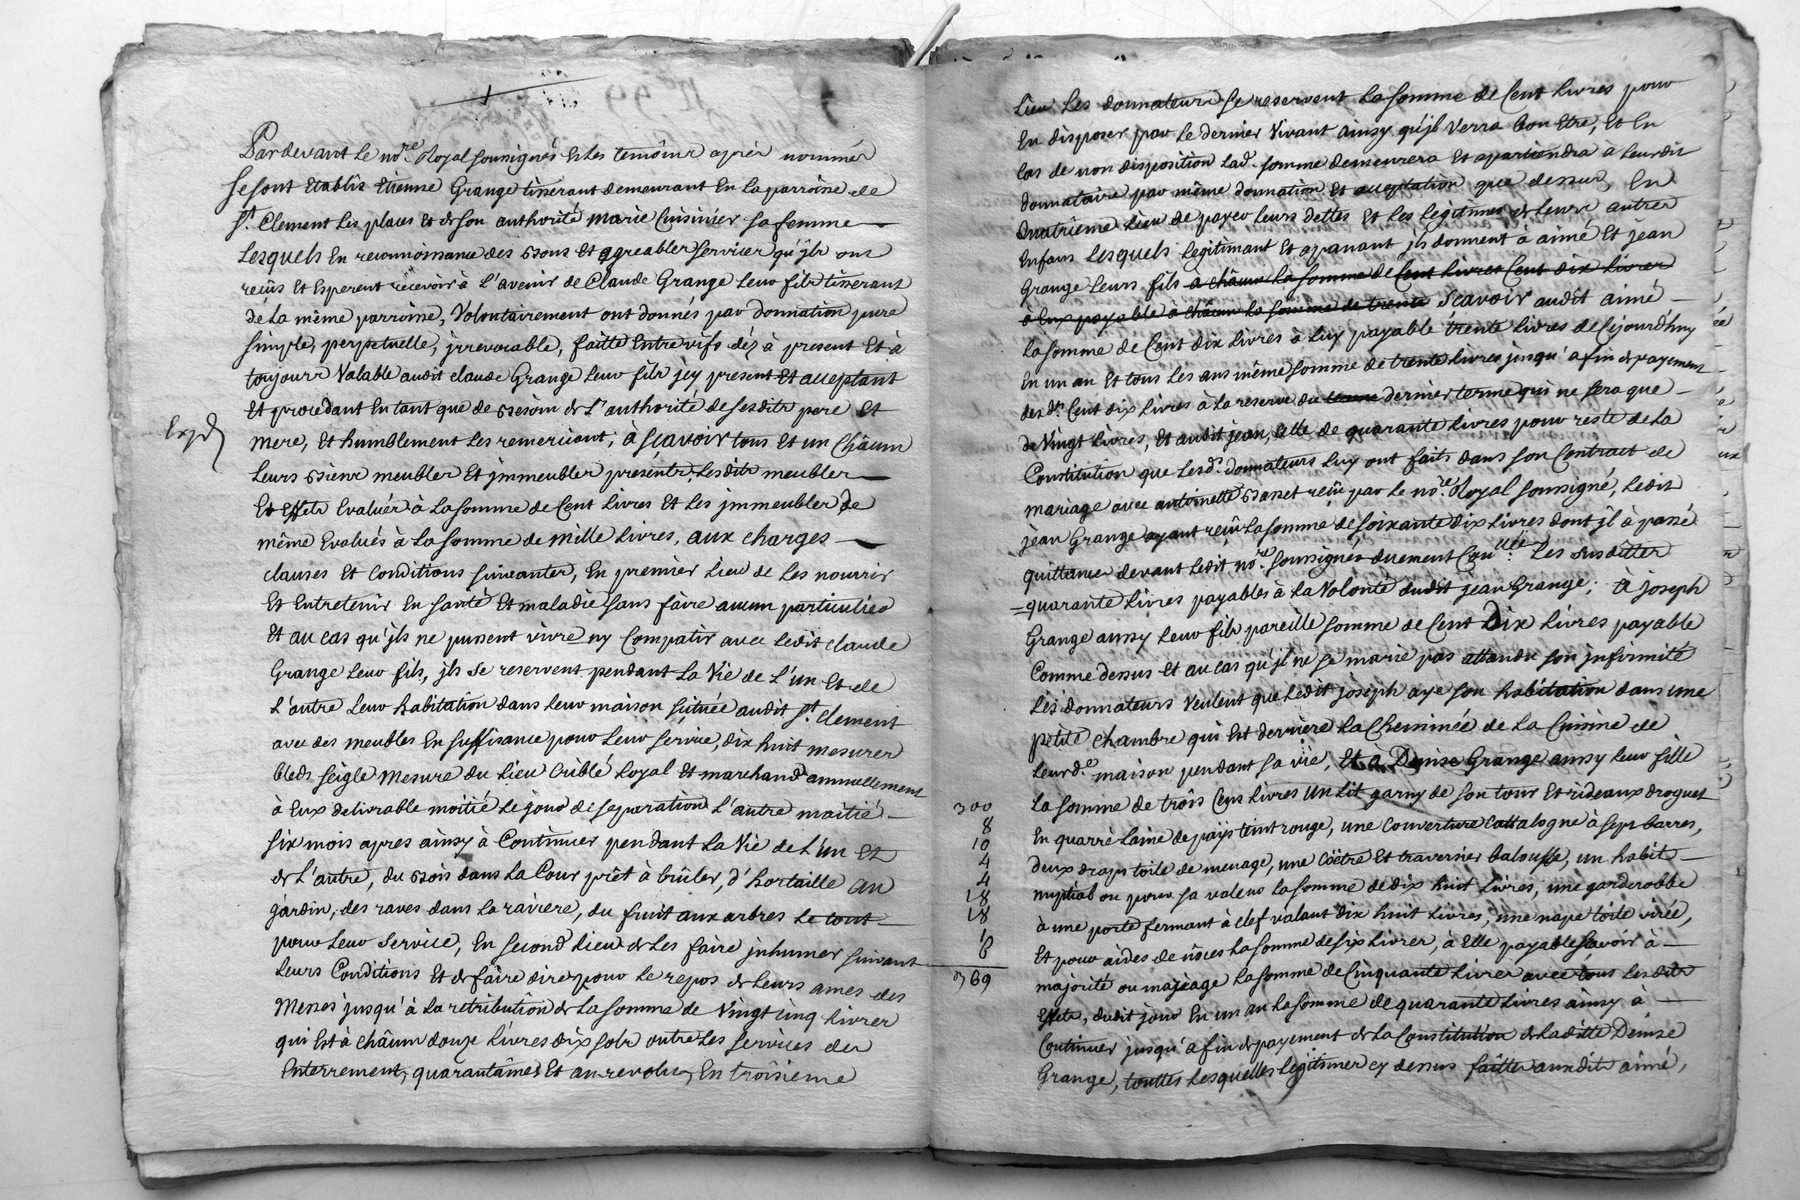 Pardevant le no.re Royal soussignés Et les temôins aprés nommés
se sont Etablis Etienne Grange tisserant demeurant En la parroisse de
st. Clement les places Et de son authorité marie Cuisinier sa femme
Lesquels En reconnoissance des bons Et agreables services qu'jls ont
reçûs Et Esperent recevoir à L'avenir de Claude Grange Leur fils tisserant
de La même parroisse, Volontairement ont donnés par donnation pure
simple, perpetuelle, jrrevocable, faitte Entre vifs déz à present Et à
toujours Valable audit claude Grange Leur fils jcy present Et acceptant
Et procedant En tant que de besoin de L'authorité de sesdits pere et
mere, Et humblement Les remerciant, à sçavoir tous Et un Châcun
Leurs biens meubles Et jmmeubles presents, Lesdits meubles
Et effets Evalués à La somme de Cent Livres Et Les jmmeubles de
même Evalués à La somme de mille Livres, aux charges
clauses Et Conditions suivantes, En premier Lieu de Les nourrir
Et Entretenir En santé Et maladie sans faire aucun particulier
Et au cas qu'jls ne pussent vivre ny Compatir avec Ledit claude
Grange Leur fils, jls se reservent pendant La Vie de L'un Et de
L'autre Leur habitation dans Leur maison scituée audit st. Clement
avec des meubles En suffisance pour Leur service, dix huit mesures
bleds seigle mesure du Lieu Criblé Loyal Et marchand annuellement
à Eux delivrable moitié Le jour de separation L'autre moitié
six mois apres ainsy à Continuer pendant La Vie de L'un Et
de L'autre, du bois dans La Cour prêt à brûler, d'hortaille au
jardin, des raves dans La raviere, du fruit aux arbres Le tout
pour Leur service, En second Lieu de Les faire jnhumer suivant
Leurs Conditions Et de faire dire pour Le repos de Leurs ames des
Messes jusqu'à La retribution de La somme de Vingt cinq Livres
qui Est à châcun douze Livres dix sols outre Les services des
Enterrement, quarantaines Et an revolu, En troisieme
Exp.d
Lieu Les donnateurs se reservent La somme de Cent Livres pour
En disposer par Le dernier Vivant ainsy qu'jl verra bon Etre, Et En
Cas de non disposition Lad. somme demeurera Et apartiendra a Leurdit
donnataire par même donnation Et acceptation que dessus, En
quatrieme Lieu de payer Leurs dettes Et Les Legitimes de Leurs autres
Enfans Lesquels Legitimant Et apanant jls donnent à aimé Et jean
Grange Leurs fils a châcun La somme de Cent Livres Cent dix Livres
a Eux payable a châcun La somme de trente sçavoir audit aimé
La somme de Cent dix Livres à Luy payable trente Livres de cejourdhuy
En un an Et tous Les ans même somme de trente Livres jusqu'a fin de payement
desd. Cent dix Livres à La reserve du terme dernier terme qui ne sera que
de Vingt Livres, Et audit jean, Celle de quarante Livres pour reste de La
Constitution que Lesd. donnateurs Luy ont faits dans son Contract de
mariage avec antoinette basset reçû par Le no.re Royal soussigné, Ledit
jean Grange ayant reçû La somme de soixante dix Livres dont jl à passé
quittance devant Ledit no.re soussigné duement Con.llée Les susdittes
quarante Livres payables à La Volonté dudit jean Grange. à joseph
Grange aussy Leur fils pareille somme de Cent Dix Livres payable
Comme dessus Et au cas qu'jl ne se marie pas attandu son jnfirmité
Les donnateurs Veulent que Ledit joseph aye son habitation dans une
petite chambre qui Est derriere La Cheminée de La Cuisine de
Leurd.e maison pendant sa vie, Et à Denise Grange aussy Leur fille
La somme de trois Cens Livres un Lit garny de son tour Et rideaux droguet
En quarré Laine de païs teint rouge, une Couverture Cattalogne à sept barres,
deux draps toile de menage, une Coëtre Et traversier balouffe, un habit
nuptial ou pour sa valeur La somme de dix huit Livres, une garderobbe
à une porte fermant à clef valant dix huit Livres, une nape toile virée,
Et pour aides de nôces La somme de six Livres, à Elle payable sçavoir à
majorité ou mariage La somme de Cinquante Livres avec tous Lesdits
Effets, dudit jour En un an La somme de quarante Livres ainsy à
Continuer jusqu'a fin de payement de La Constitution de Laditte Denise
Grange, touttes Lesquelles Legitimes cy dessus faittes auxdits aimé,
300
8
10
4
4
18
18
1
6
369